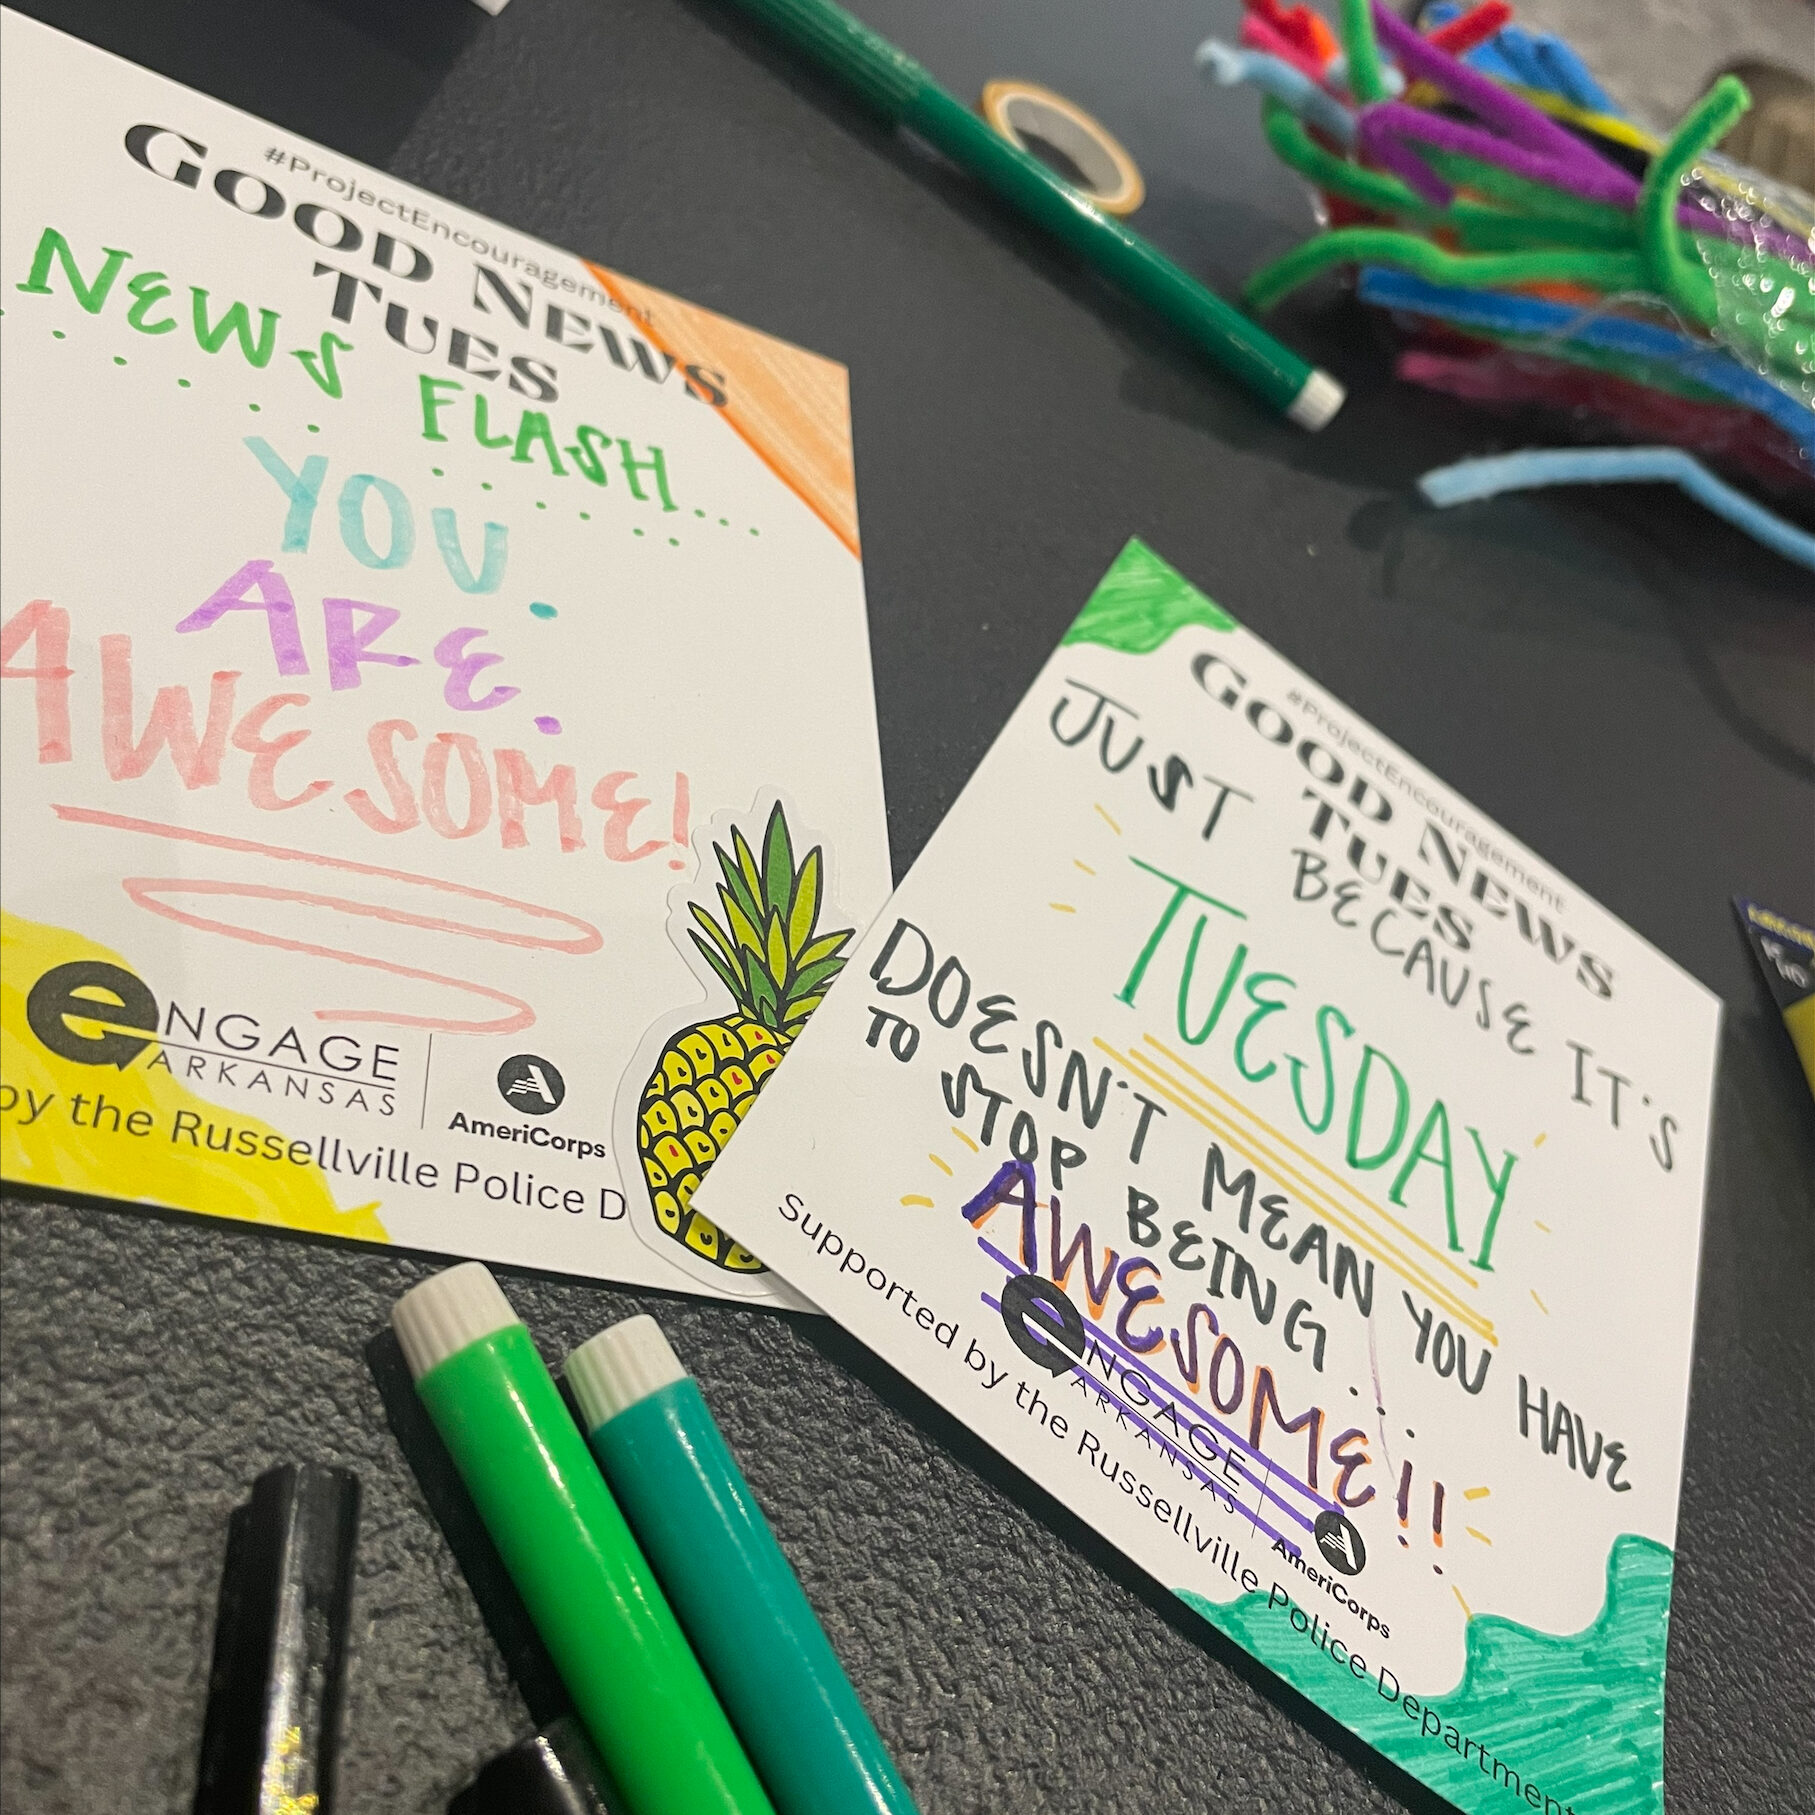 #ProjectEncouragement
GOOD NEWS
TUES
NEWS FLASH...
YOU.
ARE.
AWESOME!
eNGAGE
ARKANSAS
AmeriCorps
by the Russellville Police D
#ProjectEncouragement
GOOD NEWS
TUES
JUST BECAUSE IT'S
TUESDAY
DOESN'T MEAN YOU HAVE
TO STOP BEING...
AWESOME!!
eNGAGE
ARKANSAS
AmeriCorps
Supported by the Russellville Police Department